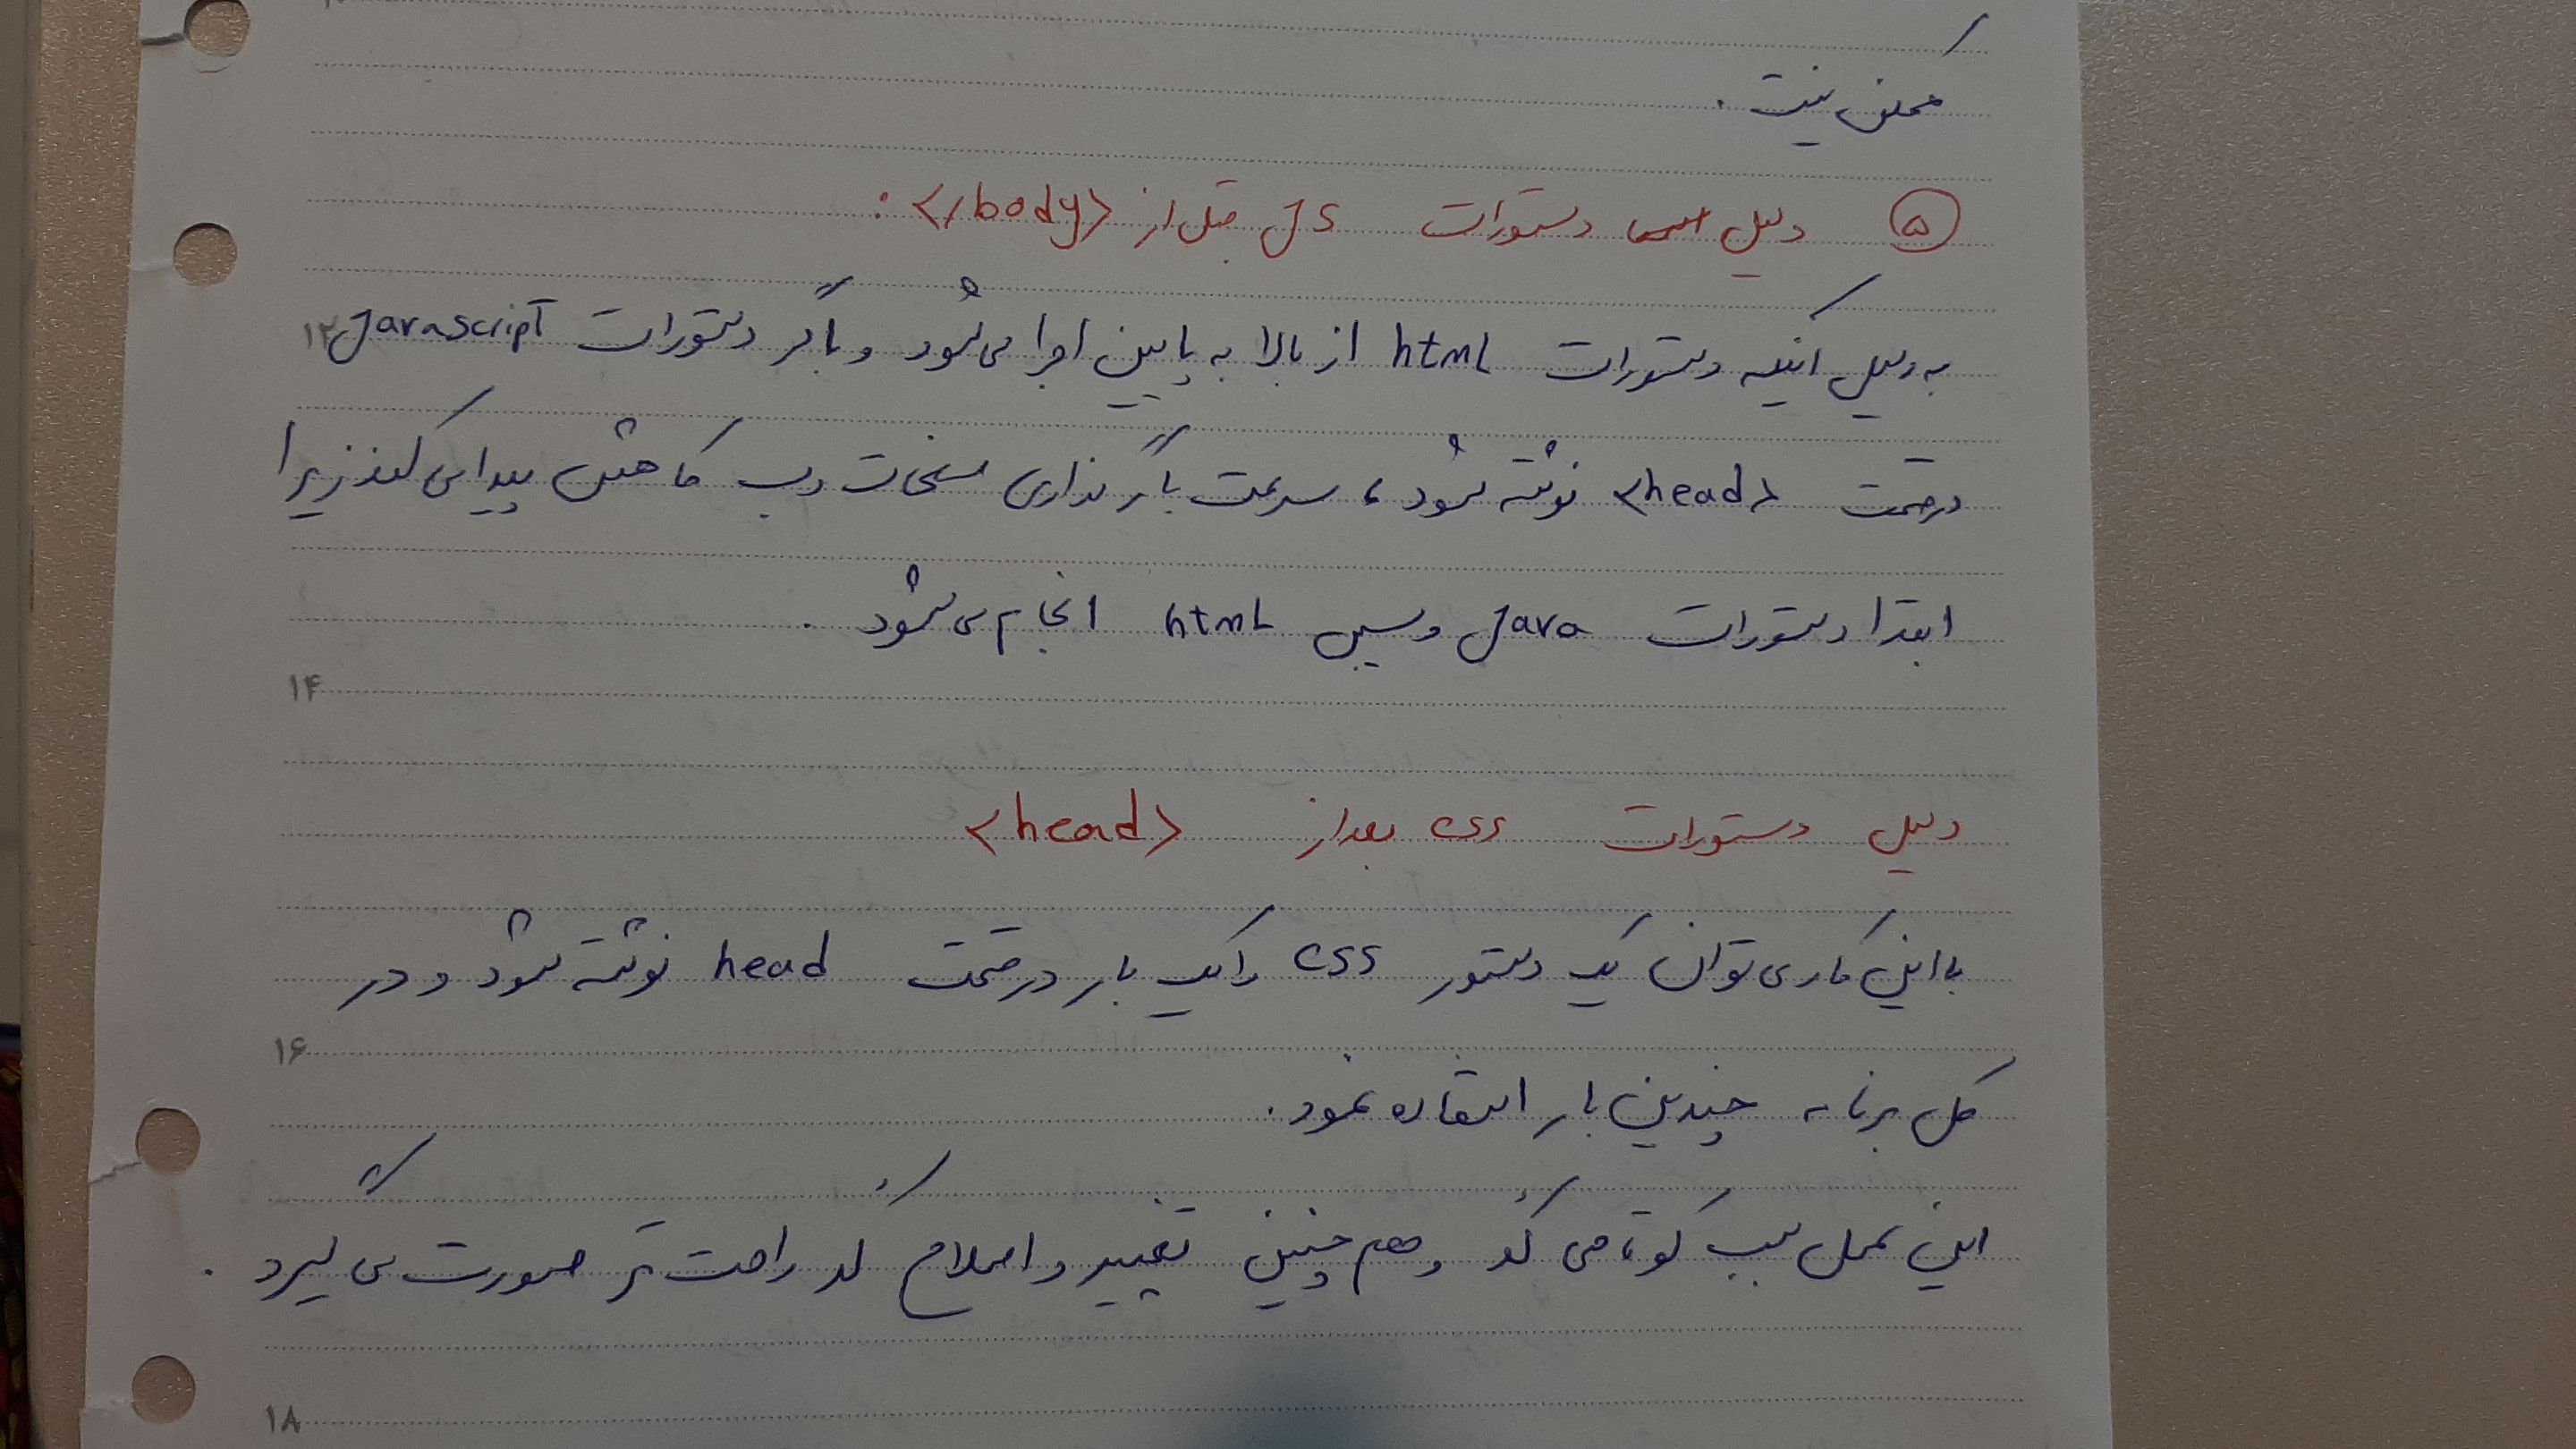 ممکن نیست .
۵ دلیل دستورات JS قبل از </body> :
به دلیل اینکه دستورات html از بالا به پایین اجرا می شود و اگر دستورات Javascript
در قسمت <head> نوشته شود ، سرعت بارگذاری صفحات وب کاهش پیدا می کند زیرا
ابتدا دستورات Java و سپس html انجام می شود .
دلیل دستورات css بعد از <head>
با این کار می توان یک دستور css را یک بار در قسمت head نوشته شود و در
کل برنامه چندین بار استفاده نمود .
این عمل سبب کوتاهی کد و هم چنین تغییر و اصلاح کد راحت تر صورت می گیرد .
۱۲
۱۴
۱۶
۱۸